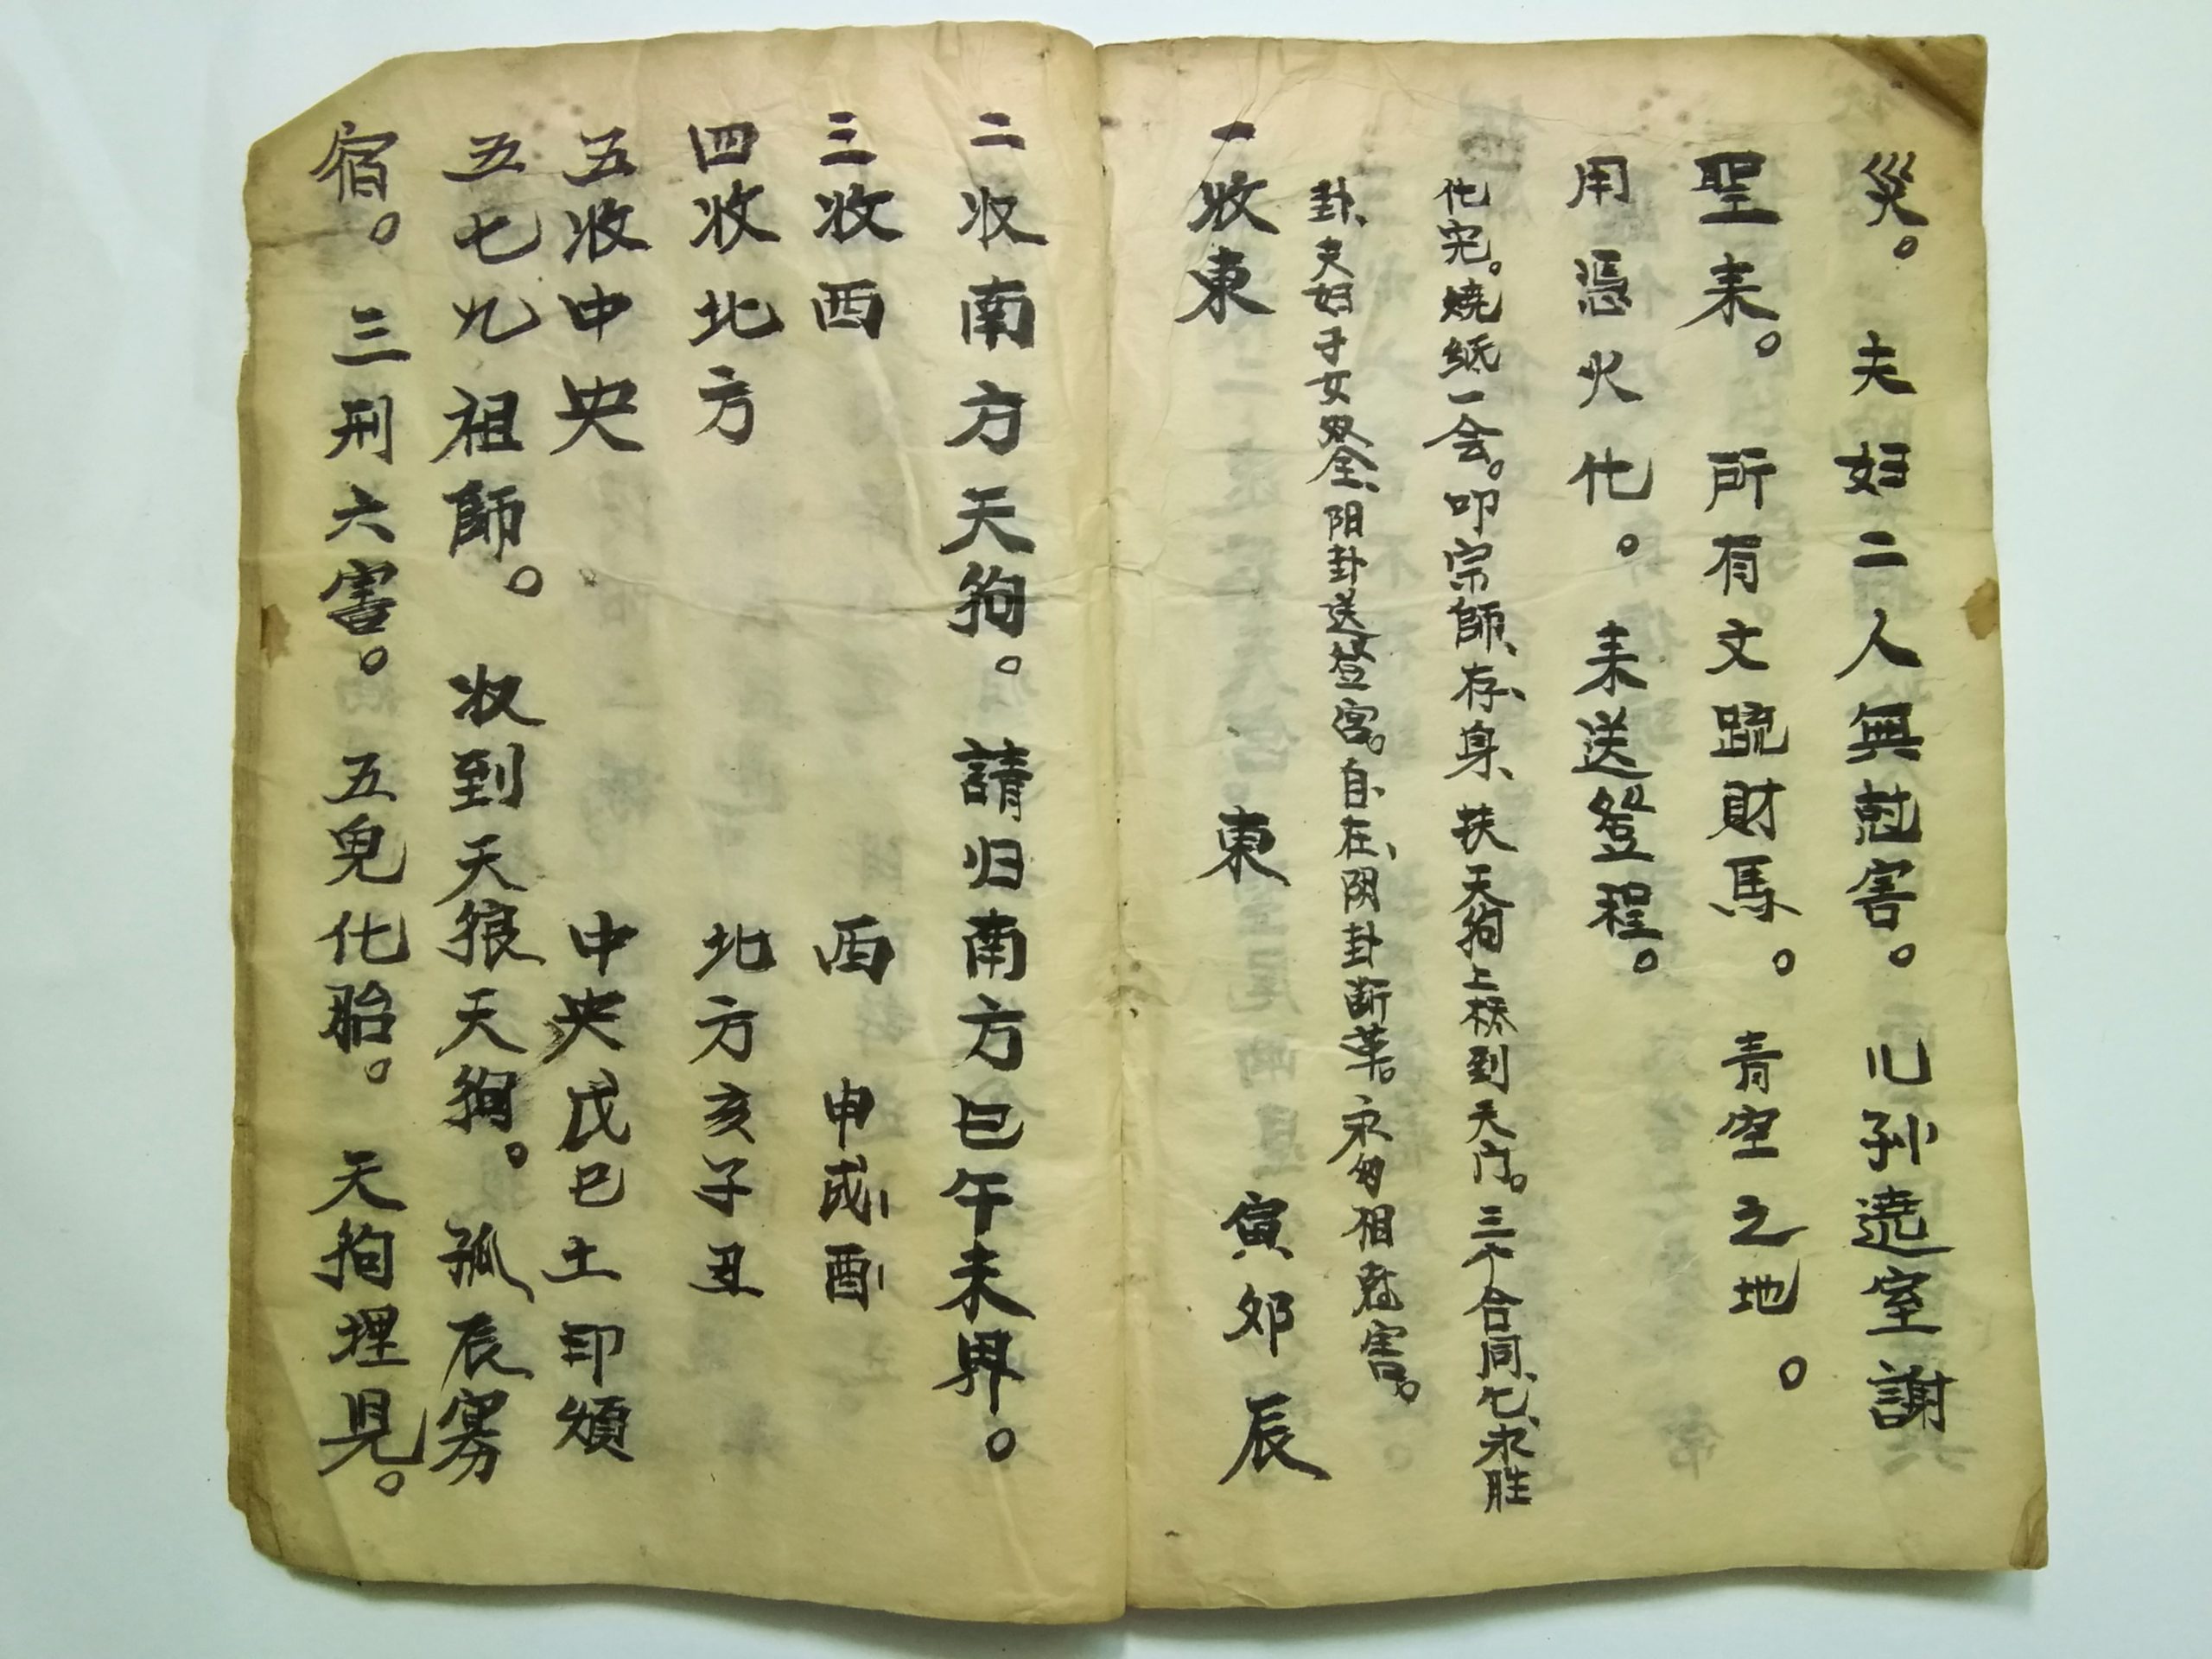 災。夫妇二人無尅害。儿孙遶室謝
聖耒。所有文疏財馬。青空之地。
用憑火化。耒送登程。
化完。燒纸一会。叩宗師、存、身、扶天狗上桥到天门。三个合同、乞、永胜
卦、夫妇子女双全、阳卦送登宫。自在、阴卦断革。永勿相尅害。
一收東 東 寅卯辰
二收南方天狗。請归南方巳午未界。
三收西 西 申戌酉
四收北方 北方亥子丑
五收中央 中央戊巳土印頒
五七九祖師。收到天狼天狗。孤辰寡
宿。三刑六害。五鬼化胎。天狗埋見。